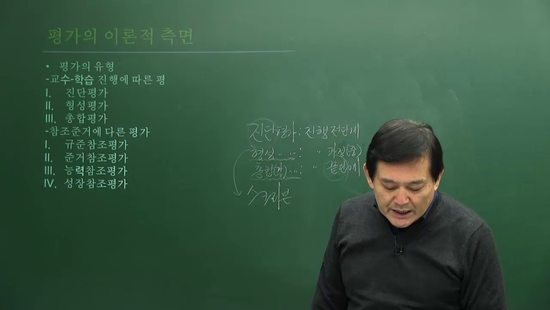 평가의 이론적 측면
• 평가의 유형
-교수-학습 진행에 따른 평
I. 진단평가
II. 형성평가
III. 총합평가
-참조준거에 다른 평가
I. 규준참조평가
II. 준거참조평가
III. 능력참조평가
IV. 성장참조평가
진단평가 : 진행 전단계
형성 〃 :
총합 〃 :